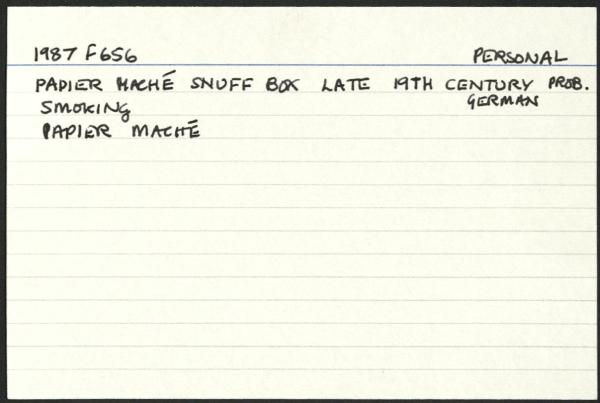 1987 F656 PERSONAL
PAPIER MACHÉ SNUFF BOX LATE 19TH CENTURY PROB.
GERMAN
SMOKING
PAPIER MACHÉ